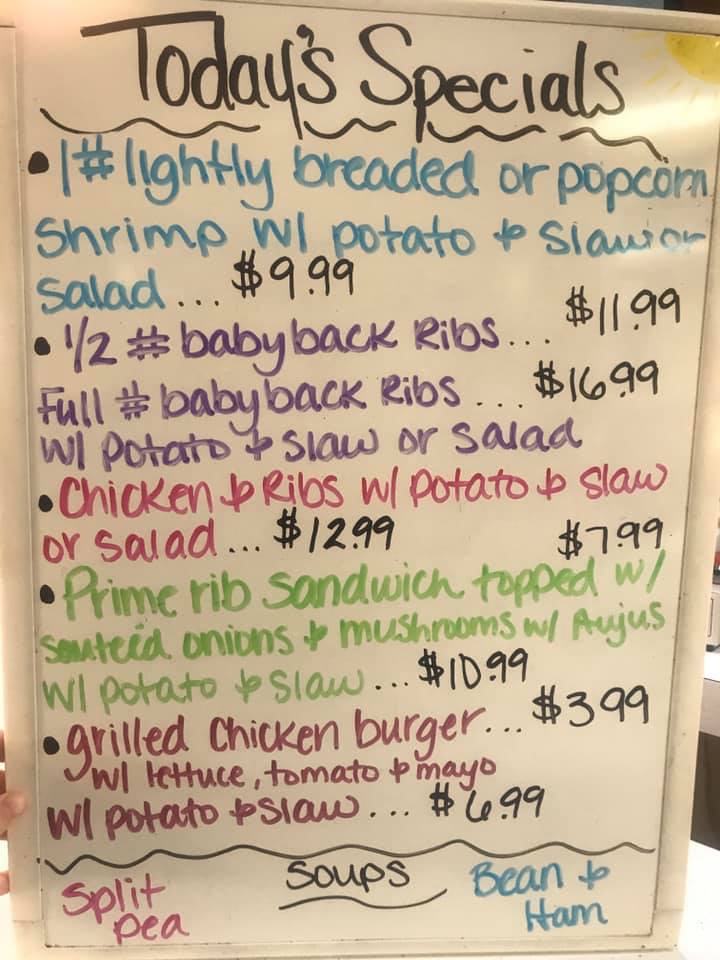 Today's Specials
• 1# lightly breaded or popcorn
shrimp w/ potato & slaw or
salad... $9.99
• 1/2 # babyback Ribs... $11.99
Full # babyback Ribs... $16.99
w/ potato & slaw or salad
• Chicken & Ribs w/ potato & slaw
or salad... $12.99
$7.99
• Prime rib sandwich topped w/
sauteed onions & mushrooms w/ Aujus
w/ potato & slaw... $10.99
• grilled chicken burger... $3.99
w/ lettuce, tomato & mayo
w/ potato & slaw... $6.99
Soups
Split pea
Bean & Ham